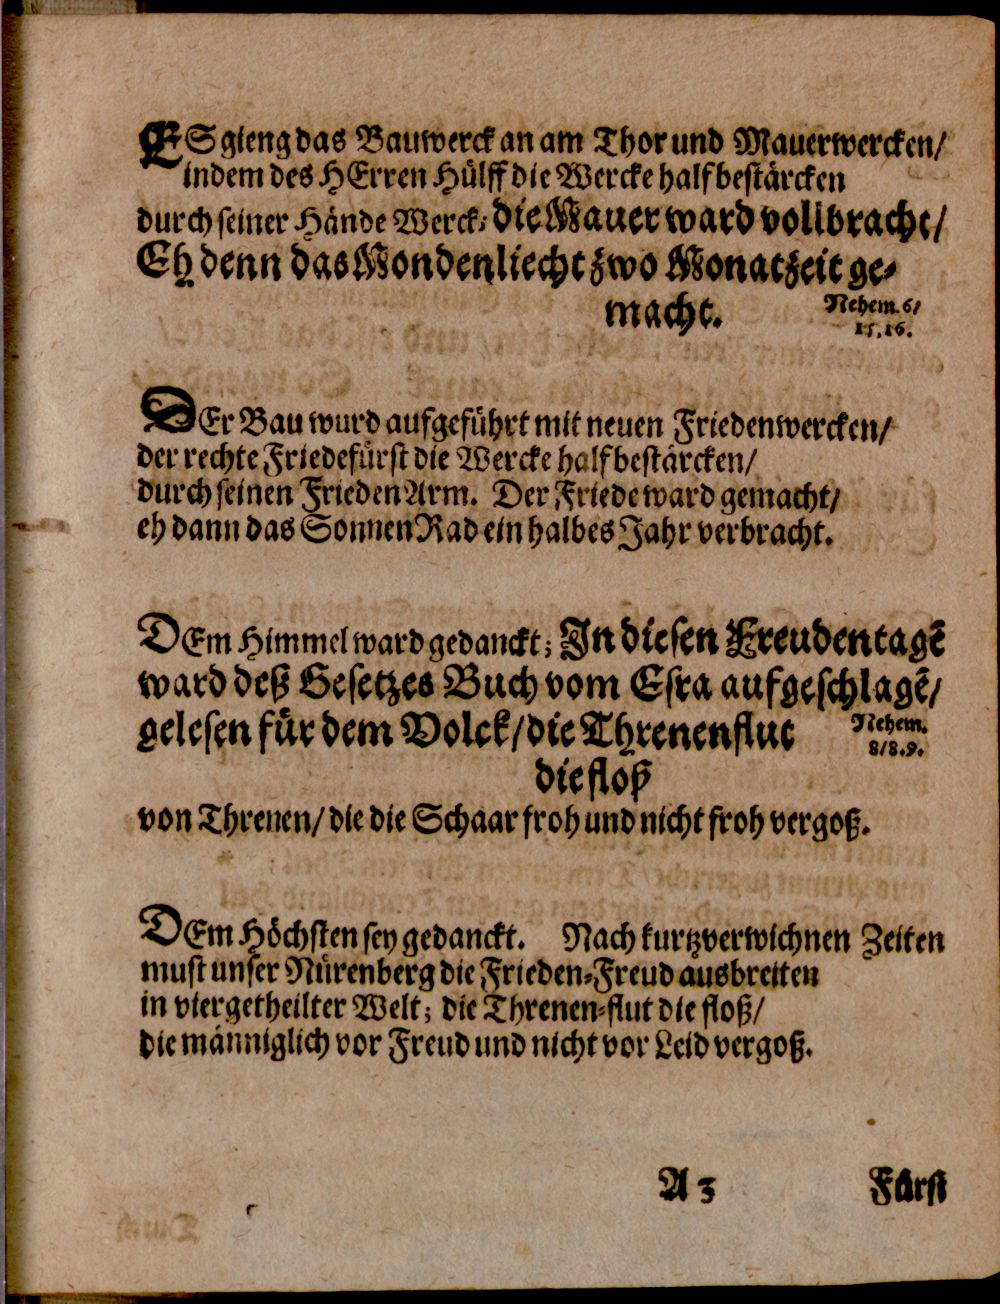 ES gieng das Bauwerck an am Thor und Mauerwercken/
indem des HErren Hülff die Wercke half bestärcken
durch seiner Hände Werck; die Mauer ward vollbracht/
Eh denn das Mondenliecht zwo Monatzeit ge-
macht.
Nehem. 6/
15.16.
DEr Bau wurd aufgeführt mit neuen Friedenwercken/
der rechte Friedefürst die Wercke half bestärcken/
durch seinen Frieden Arm. Der Friede ward gemacht/
eh dann das Sonnen Rad ein halbes Jahr verbracht.
DEm Himmel ward gedanckt; In diesen Freudentagẽ
ward deß Gesetzes Buch vom Esra aufgeschlagẽ/
gelesen für dem Volck/ die Threnenflut
Nehem.
8/8.9.
die floß
von Threnen/ die die Schaar froh und nicht froh vergoß.
DEm Höchsten sey gedanckt. Nach kurtzverwichnen Zeiten
must unser Nürenberg die Frieden-Freud ausbreiten
in viergetheilter Welt; die Threnen-flut die floß/
die männiglich vor Freud und nicht vor Leid vergoß.
A 3
Fürst